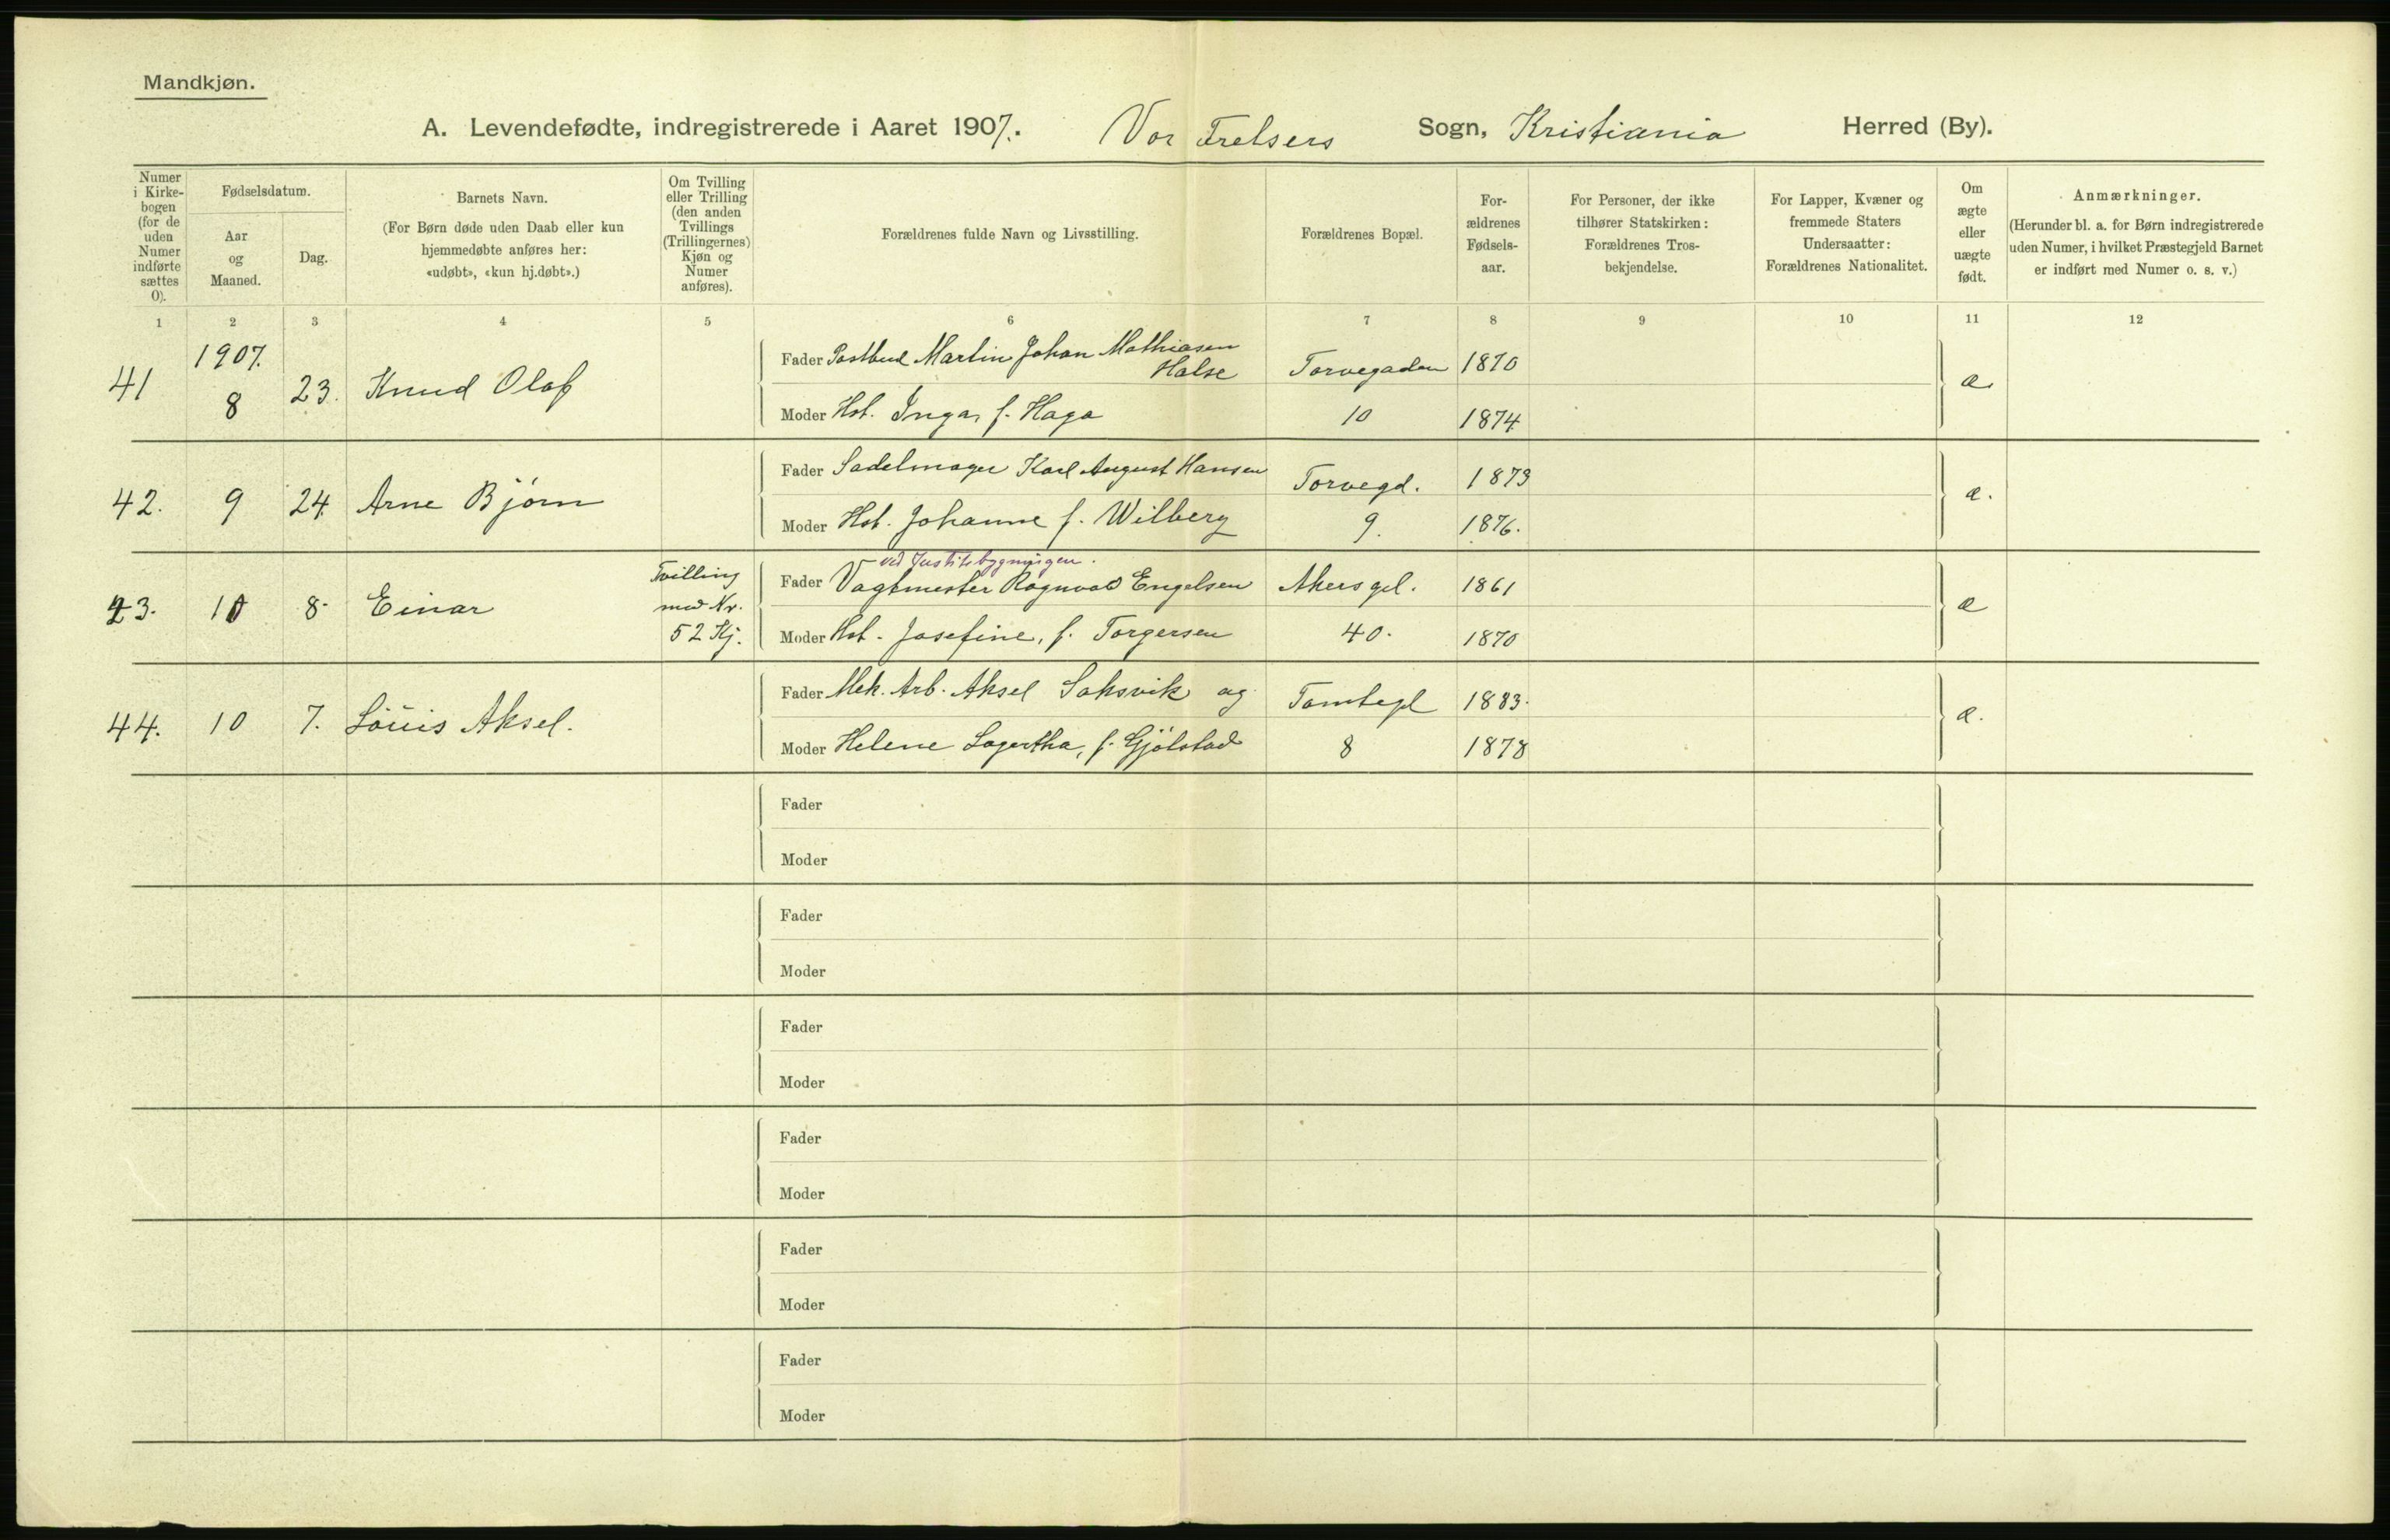 Mandkjøn.
A. Levendefødte, indregistrerede i Aaret 1907. Vor Frelsers Sogn, Kristiania Herred (By).
Numer
i Kirke-
bogen
(for de
uden
Numer
indførte
sættes
0).
Fødselsdatum.
Aar
og
Maaned.
Dag.
Barnets Navn.
(For Børn døde uden Daab eller kun
hjemmedøbte anføres her:
«udøbt», «kun hj.døbt».)
Om Tvilling
eller Trilling
(den anden
Tvillings
(Trillingernes)
Kjøn og
Numer
anføres).
Forældrenes fulde Navn og Livsstilling.
Forældrenes Bopæl.
For-
ældrenes
Fødsels-
aar.
For Personer, der ikke
tilhører Statskirken:
Forældrenes Tros-
bekjendelse.
For Lapper, Kvæner og
fremmede Staters
Undersaatter:
Forældrenes Nationalitet.
Om
ægte
eller
uægte
født.
Anmærkninger.
(Herunder bl. a. for Børn indregistrerede
uden Numer, i hvilket Præstegjeld Barnet
er indført med Numer o. s. v.)
1 2 3 4 5 6 7 8 9 10 11 12
1907.
41 8 23. Knud Olaf
Fader Postbud Martin Johan Mathiasen
Halse
Torvegaden 1870
Moder Hst. Inga, f. Haga 10 1874
æ.
42. 9 24. Arne Bjørn
Fader Sadelmager Karl August Hansen Torvegd. 1873
Moder Hst. Johanne f. Wilberg 9. 1876.
æ.
43. 10 8. Einar
Tvilling
med Nr.
52 Kj.
ved Justitsbygningen.
Fader Vagtmester Ragnvald Engelsen Akersgd. 1861
Moder Hst. Josefine, f. Torgersen 40. 1870
æ
44. 10 7. Louis Aksel.
Fader Mek. Arb. Aksel Saksvik og Tomtegd 1883.
Moder Helene Lagertha, f. Gjølstad 8 1878
æ.
Fader
Moder
Fader
Moder
Fader
Moder
Fader
Moder
Fader
Moder
Fader
Moder